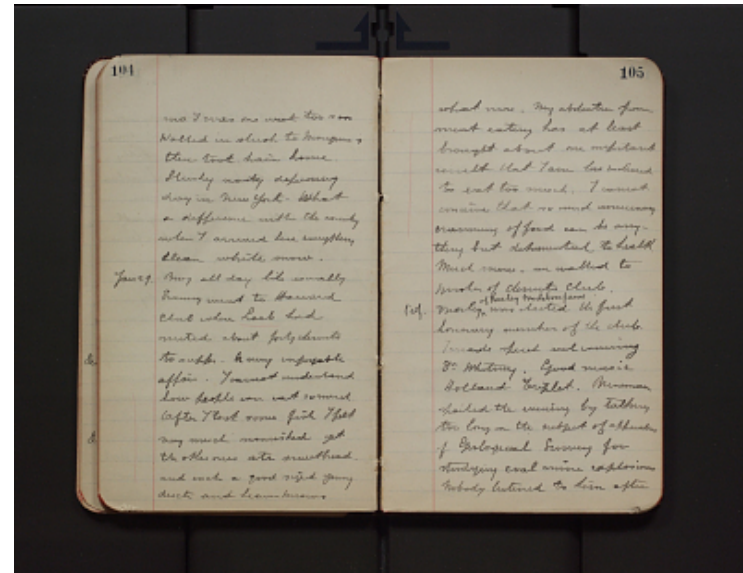 104
no I was
Walked in slush to
then took train home.
Slushy nasty depressing
day in New York. What
a difference with the country
when I arrived here everything
clean white snow.
Jan 29. Busy all day like usually
Evening went to Harvard
Club where Loeb had
invited about forty chemists
to supper. A very enjoyable
affair. I cannot understand
how people can eat so much
After I took some fish I felt
very much nourished yet
the others ate
and each a good sized young
duck and
105
what more. My abstention from
meat eating has at least
brought about one important
result that I am less inclined
to eat too much. I cannot
conceive that so much unnecessary
cramming of food can be any-
thing but detrimental to health
Much more. on walked to
of chemists Club.
Morley was elected the first
honorary member of the club.
3rd Whitney. Good music
Holland
spoiled the evening by talking
too long on the subject of
of Geological Survey for
studying coal mine explosions
Nobody listened to him after